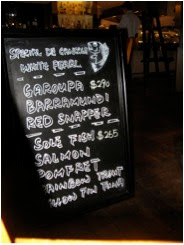 SPECIAL DE
WHITE PEARL
GAROUPA $290
BARRAMUNDI
RED SNAPPER
SOLE FISH $265
SALMON
POMFRET
RAINBOW TROUT
YELLOW FIN TUNA